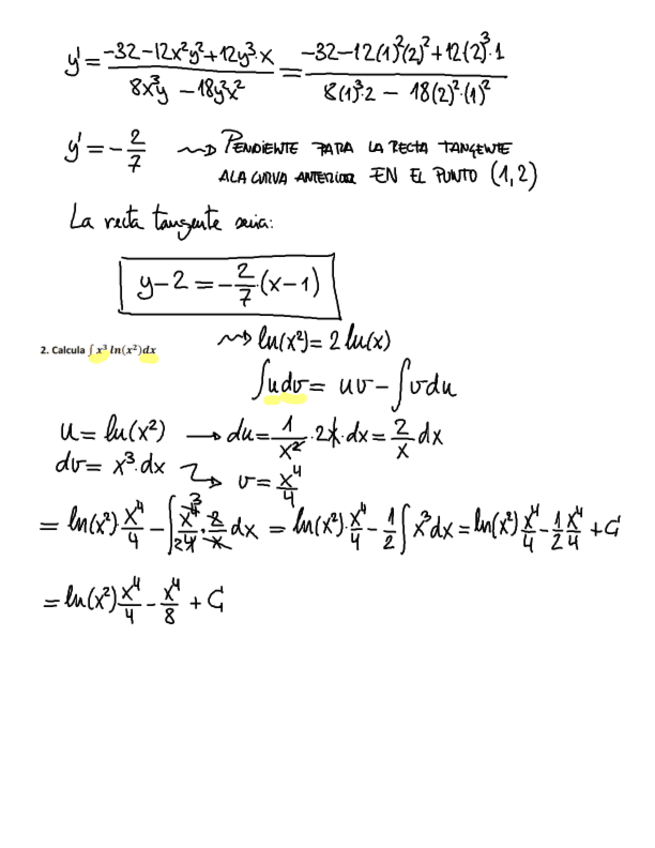 y' = (-32-12x²y²+12y³·x)/(8x³y -18y²x²) = (-32-12(1)²(2)²+12(2)³·1)/(8(1)³·2 - 18(2)²·(1)²)
y' = -2/7 ⟿ PENDIENTE PARA LA RECTA TANGENTE
A LA CURVA ANTERIOR EN EL PUNTO (1,2)
La recta tangente seria:
y-2 = -2/7·(x-1)
⟿ ln(x²) = 2 ln(x)
2. Calcula ∫ x³ ln(x²)dx
∫udv = uv - ∫vdu
u = ln(x²) → du = 1/x² · 2x·dx = 2/x dx
dv = x³·dx → v = x⁴/4
= ln(x²)·x⁴/4 - ∫ x⁴/4 · 2/x dx = ln(x²)·x⁴/4 - 1/2 ∫x³dx = ln(x²) x⁴/4 - 1/2 x⁴/4 + C
= ln(x²) x⁴/4 - x⁴/8 + C